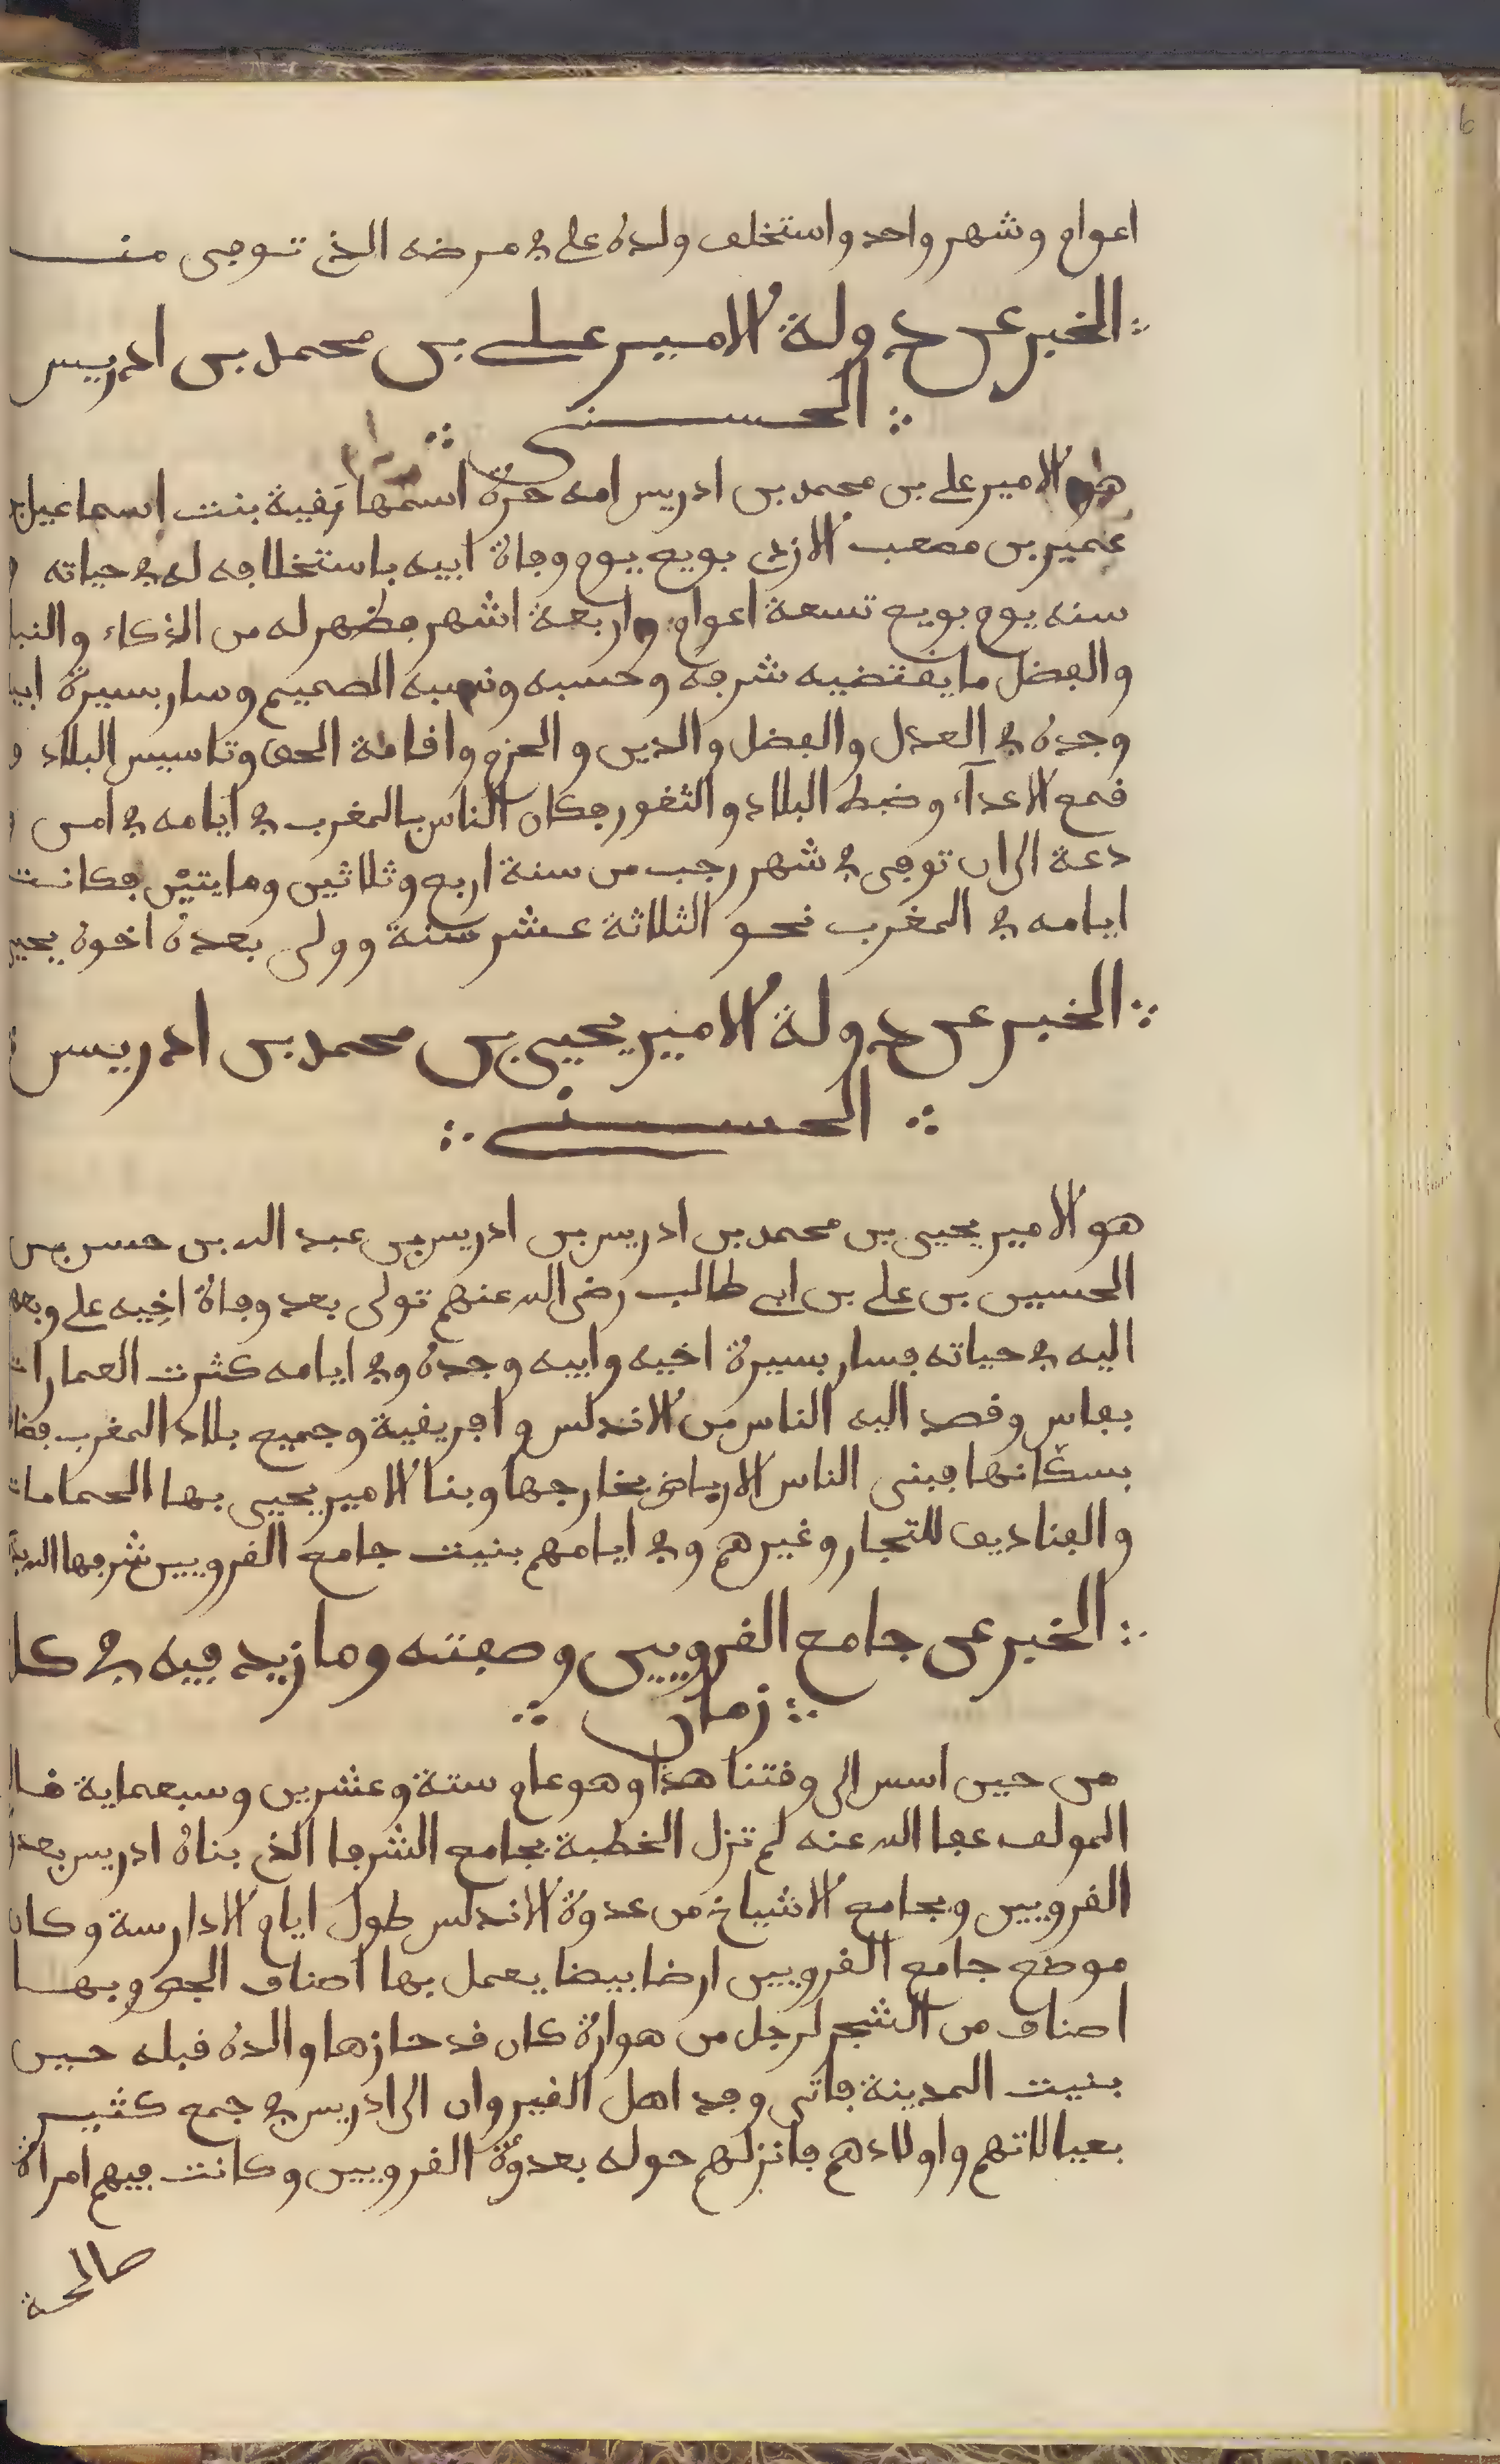 اعوام وشهر واحد واستخلف ولده علي في مرضه الذي توفي منـــه
∴ الخبر عن دولة الامير علي بن محمد بن ادريس
∴ الحسني ∴
هو الامير علي بن محمد بن ادريس امه حرة اسمها رقية بنت إسماعيل بن
عمير بن مصعب الازدي بويع يوم وفاة ابيه باستخلافه له في حياته و
سنه يوم بويع تسعة اعوام واربعة اشهر فظهر له من الذكاء والنبا
والفضل ما يقتضيه شرفه وحسبه ونسبه الصميم وسار بسيرة ابيه
وجده في العدل والفضل والدين والحزم واقامة الحق وتاسيس البلاد و
قمع الاعدآء وضبط البلاد والثغور فكان الناس بالمغرب في ايامه في امن و
دعة الى ان توفي في شهر رجب من سنة اربع وثلاثين ومايتين فكانت
ايامه في المغرب نحو الثلاثة عشر سنة وولى بعده اخوه يحيى
∴ الخبر عن دولة الامير يحيى بن محمد بن ادريس
∴ الحسني ∴
هو الامير يحيى بن محمد بن ادريس بن ادريس بن عبد الله بن حسن بن
الحسين بن علي بن ابي طالب رضي الله عنهم تولى بعد وفاة اخِيه علي وبعهد
اليه في حياته فسار بسيرة اخيه وابيه وجده وفي ايامه كثرت العمارات
بفاس وقصد اليه الناس من الاندلس وافريقية وجميع بلاد المغرب فضا
بسكّانها فبنى الناس الارباض بخارجها وبنا الامير يحيى بها الحمامات
والفناديق للتجار وغيرهم وفي ايامهم بنيت جامع القرويين شرفها الله
∴ الخبر عن جامع القرويين وصفته وما زيد فيه في كل
∴ زمان ∴
من حين اسس الى وقتنا هذا وهو عام ستة وعشرين وسبعماية قـال
المولف عفا الله عنه لم تزل الخطبة بجامع الشرفا الذي بناه ادريس بعدوة
القرويين وبجامع الاشياخ من عدوة الاندلس طول ايام الادارسة وكان
موضع جامع القرويين ارضا بيضا يعمل بها اصناف الجص وبهـــا
اصناف من الشجر لرجل من هوارة كان قد حازها والده قبله حين
بنيت المدينة فاتى وفد اهل القيروان الى ادريس في جمع كثيـر
بعيالاتهم واولادهم فانزلهم حوله بعدوة القرويين وكانت فيهم امراة
صالحة